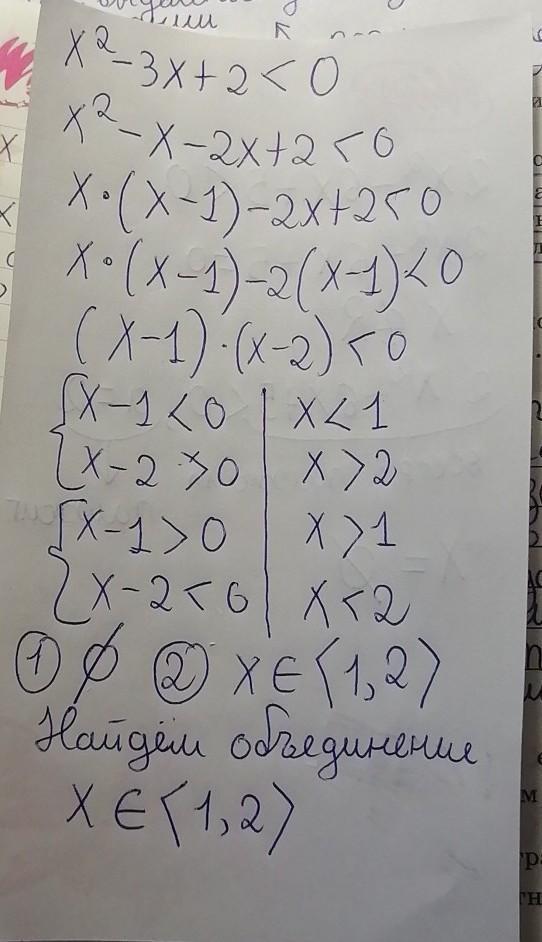 x²-3x+2<0
x²-x-2x+2<0
x·(x-1)-2x+2<0
x·(x-1)-2(x-1)<0
(x-1)·(x-2)<0
{x-1<0 | x<1
{x-2>0 | x>2
{x-1>0 | x>1
{x-2<0 | x<2
① ∅ ② x∈⟨1,2⟩
Найдём объединение
x∈⟨1,2⟩